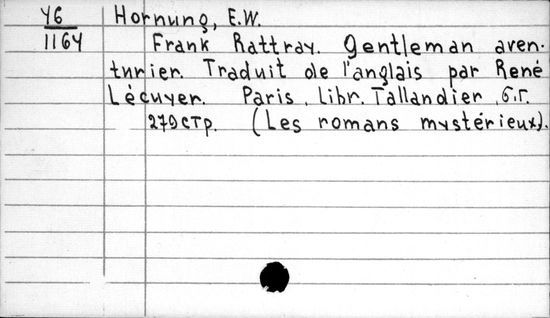 У6 Hornung, E.W.
1164 Frank Rattray. Gentleman aven-
turier. Traduit de l'anglais par René
Lécuyer. Paris, Libr. Tallandier, б.г.
279 стр. (Les romans mystérieux).